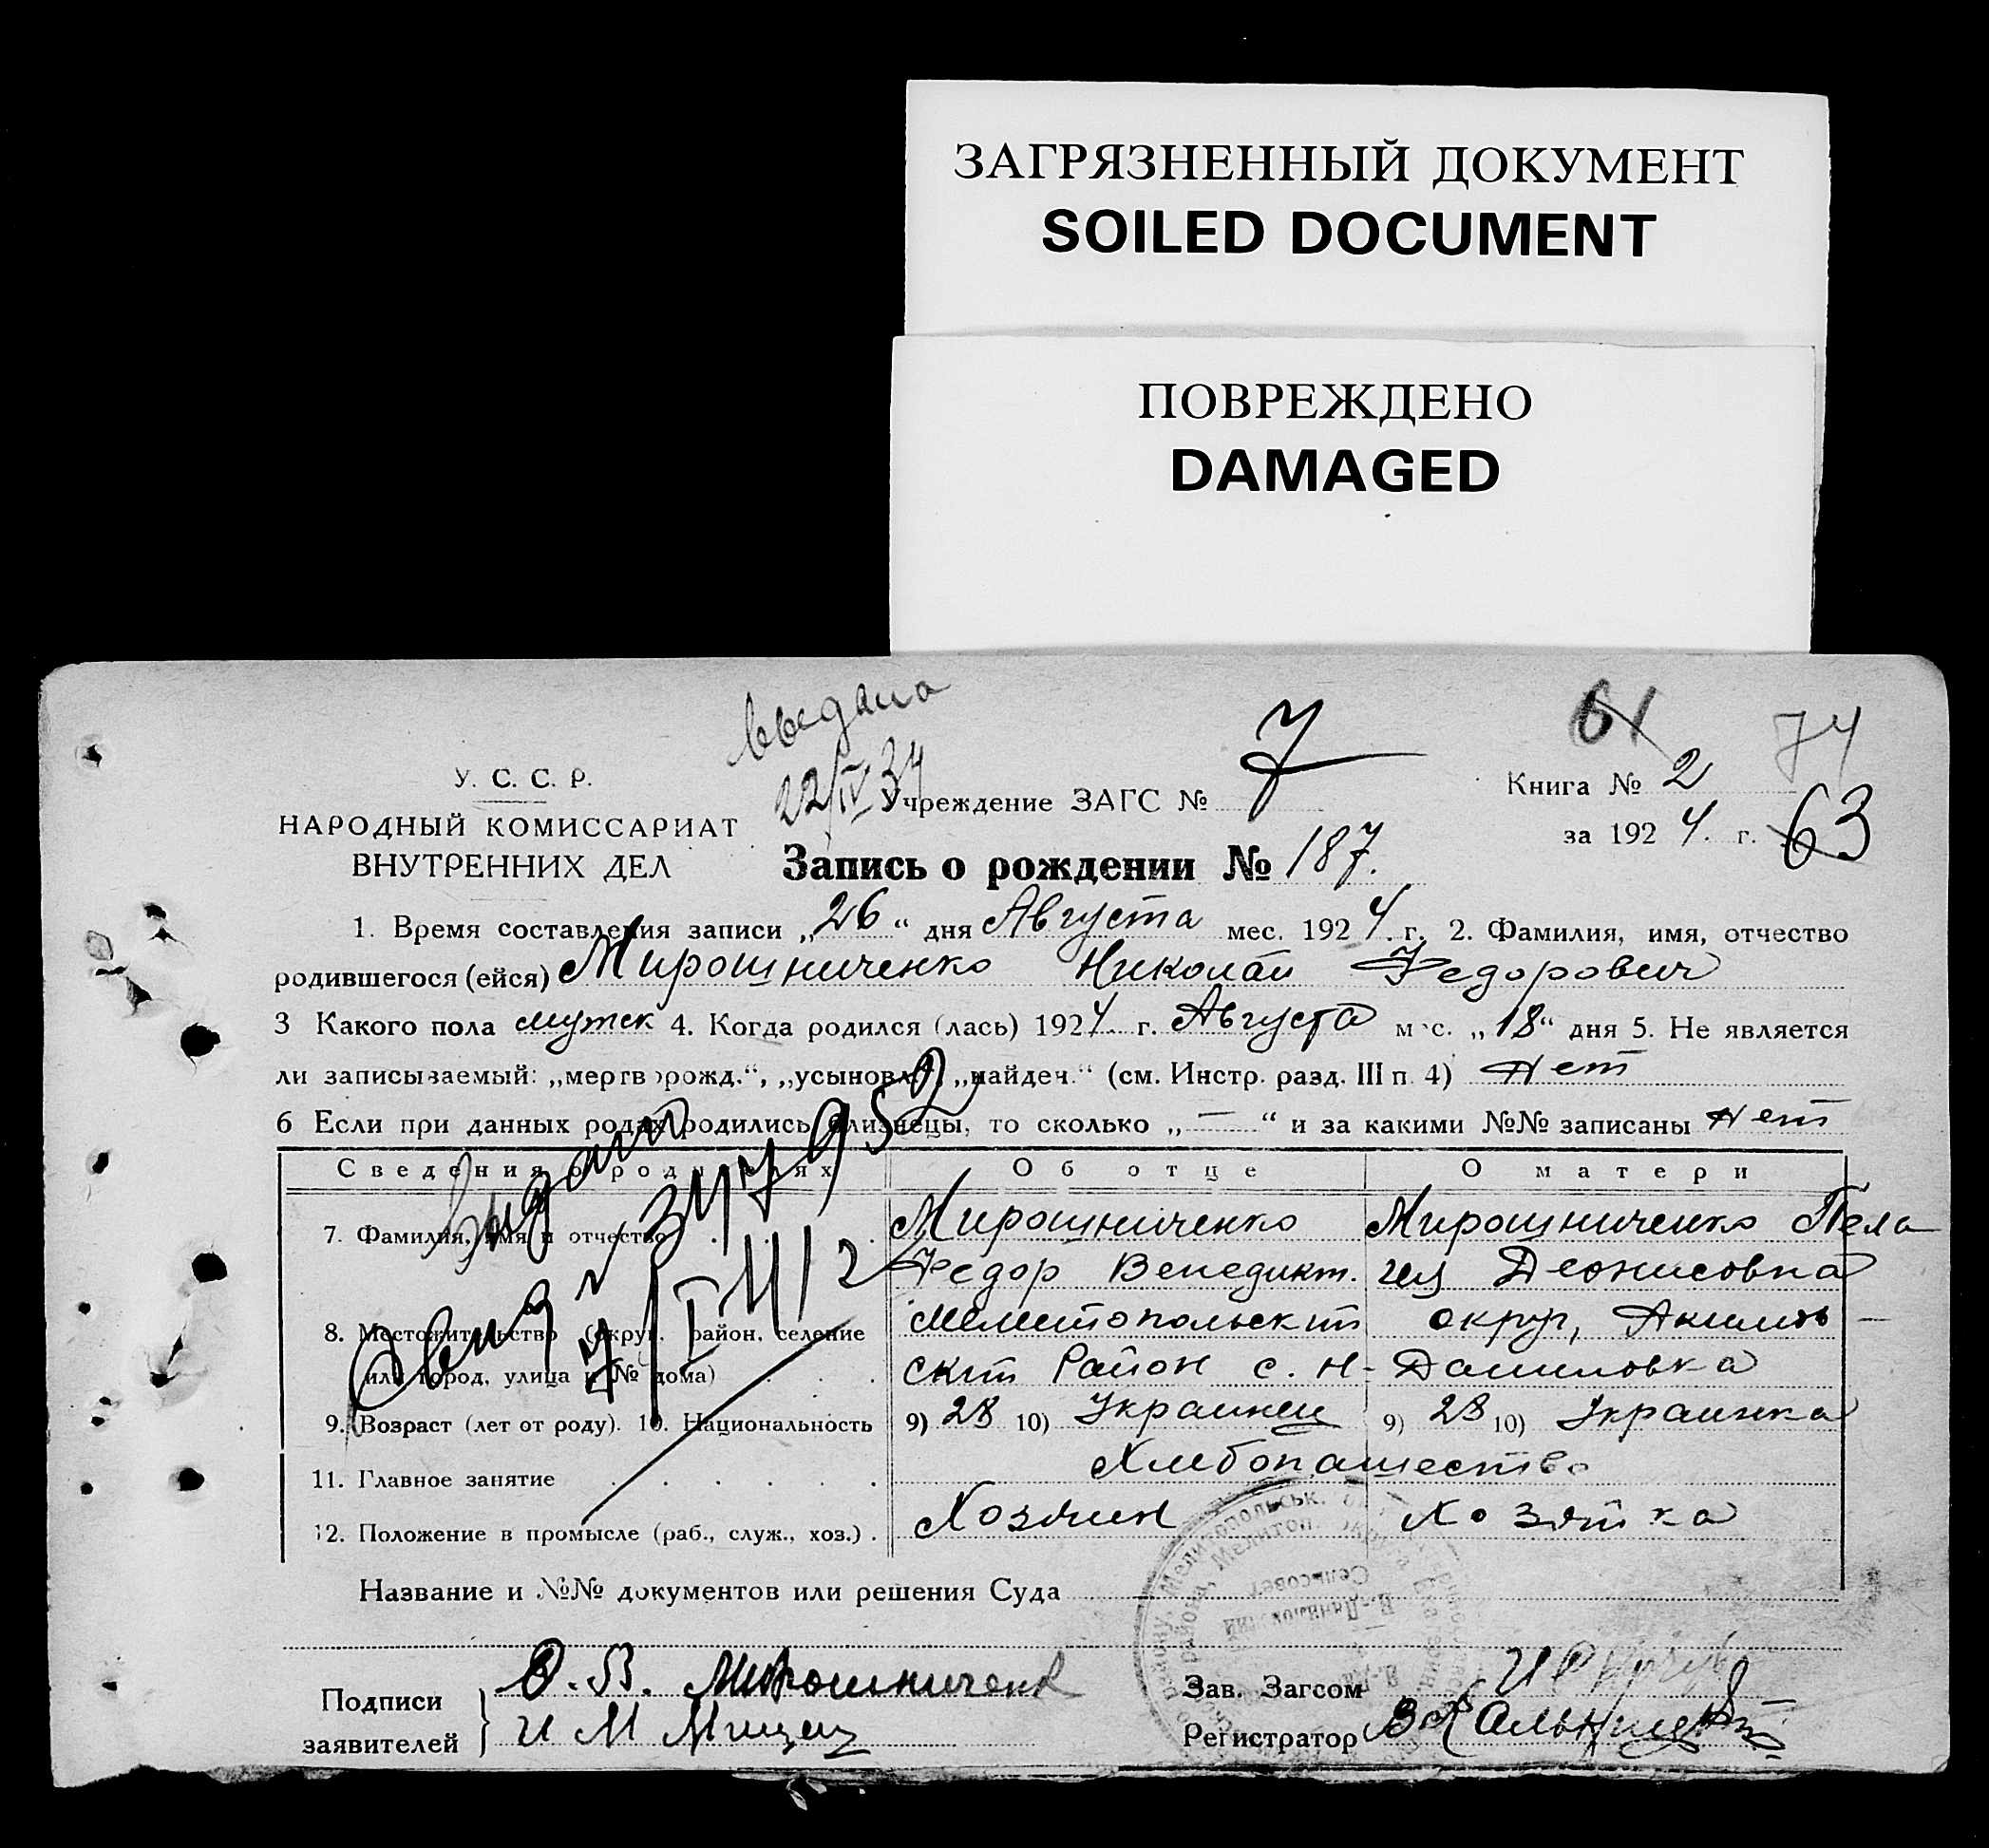 ЗАГРЯЗНЕННЫЙ ДОКУМЕНТ
SOILED DOCUMENT
ПОВРЕЖДЕНО
DAMAGED
61 74
выдана
22/IV 34
У. С. С. Р.
НАРОДНЫЙ КОМИССАРИАТ
ВНУТРЕННИХ ДЕЛ
Учреждение ЗАГС № 7
Книга № 2
за 1924 г. 63
Запись о рождении № 187.
1. Время составления записи „26“ дня Августа мес. 1924 г. 2. Фамилия, имя, отчество
родившегося (ейся) Мирошниченко Николай Федорович
3 Какого пола мужск 4. Когда родился (лась) 1924 г. Августа мес. „18“ дня 5. Не является
ли записываемый: „мертворожд.“, „усыновл.“, „найден.“ (см. Инстр. разд. III п. 4) Нет
6 Если при данных родах родились близнецы, то сколько „—“ и за какими №№ записаны Нет
Сведения о родителях Об отце О матери
7. Фамилия, имя и отчество Мирошниченко Мирошниченко Пела
Федор Венедикт. гея Деонисовна
8. Местожительство (округ, район, селение Мелитопольский округ, Акимов-
или город, улица и № дома) ский Район с. Н-Даниловка
9. Возраст (лет от роду). 10. Национальность 9) 28 10) Украинец 9) 28 10) Украинка
11. Главное занятие Хлебопашество
12. Положение в промысле (раб., служ., хоз.) Хозяин Хозяйка
Название и №№ документов или решения Суда
Подписи заявителей
Ф. В. Мирошниченк
И М Мищен
Зав. Загсом
Регистратор В Кальницкий